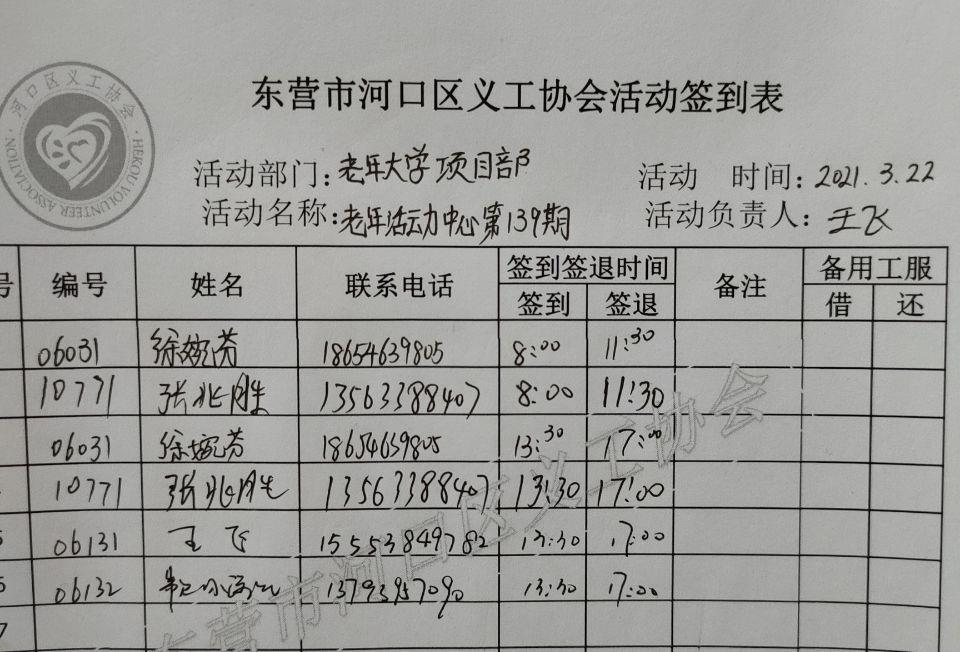 东营市河口区义工协会活动签到表
河口区义工协会
HEKOU VOLUNTEER ASSOCIATION
活动部门:老年大学项目部 活动 时间:2021.3.22
活动名称:老年活动中心第139期 活动负责人:王飞
号 编号 姓名 联系电话 签到签退时间 备注 备用工服
签到 签退 借 还
06031 徐婉芬 18654639805 8:00 11:30
10771 张兆胜 13563388407 8:00 11:30
06031 徐婉芬 18654639805 13:30 17:00
10771 张兆胜 13563388407 13:30 17:00
5 06131 王飞 15553849782 13:30 17:00
6 06132 13793957090 13:30 17:00
7
东营市河口区义工协会